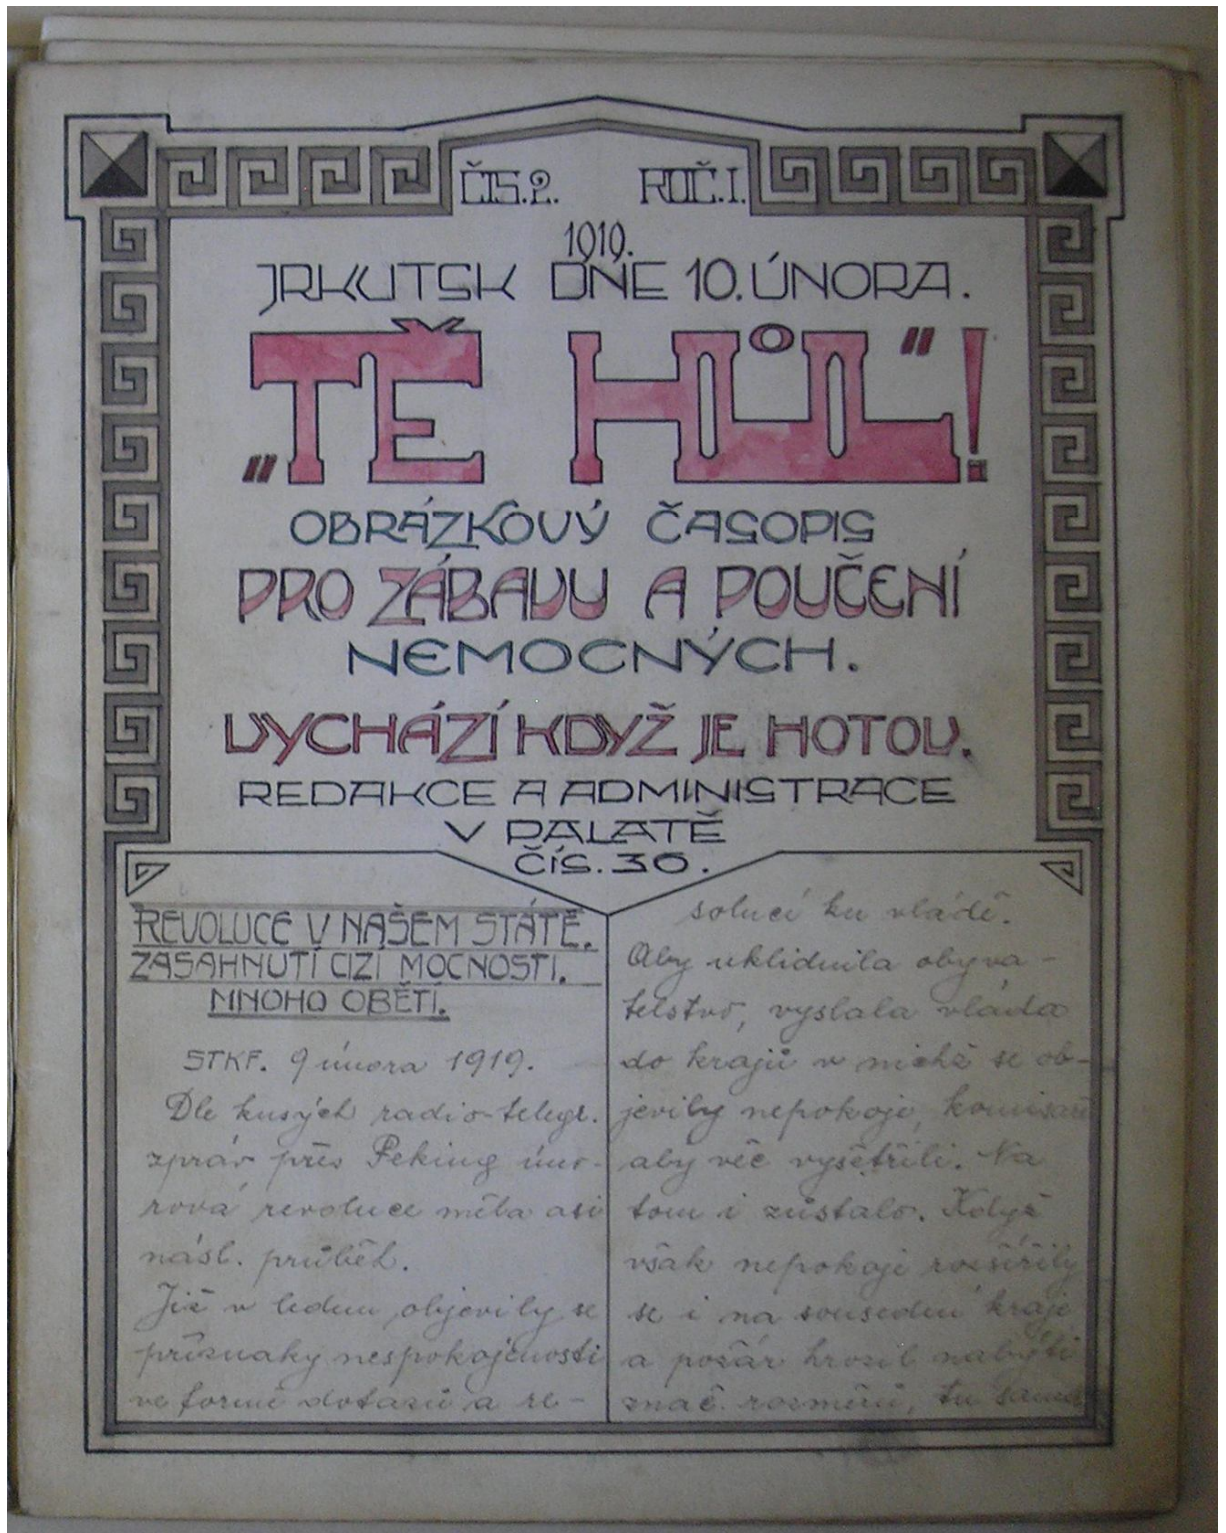 ČÍS.2. ROČ.I.
1919.
JRKUTSK DNE 10. ÚNORA.
„TĚ HŮL“!
OBRÁZKOVÝ ČASOPIS
PRO ZÁBAVU A POUČENÍ
NEMOCNÝCH.
VYCHÁZÍ KDYŽ JE HOTOV.
REDAKCE A ADMINISTRACE
V PALATĚ
ČÍS. 36.
REVOLUCE V NAŠEM STÁTĚ.
ZASAHNUTÍ CIZÍ MOCNOSTI.
MNOHO OBĚTÍ.
STKF. 9 února 1919.
Dle kusých radio-telegr.
zpráv přes Peking úno-
rová revoluce měla asi
násl. průběh.
Již v lednu objevily se
příznaky nespokojenosti
ve formě dotazů a re-
solucí ku vládě.
Aby uklidnila obyva-
telstvo, vyslala vláda
do krajů v nichž se ob-
jevily nepokoje, komisaře
aby věc vyšetřili. Na
tom i zůstalo. Když
však nepokoje rozšířily
se i na sousední kraje
a požár hrozil nabýti
znač. rozměrů, tu